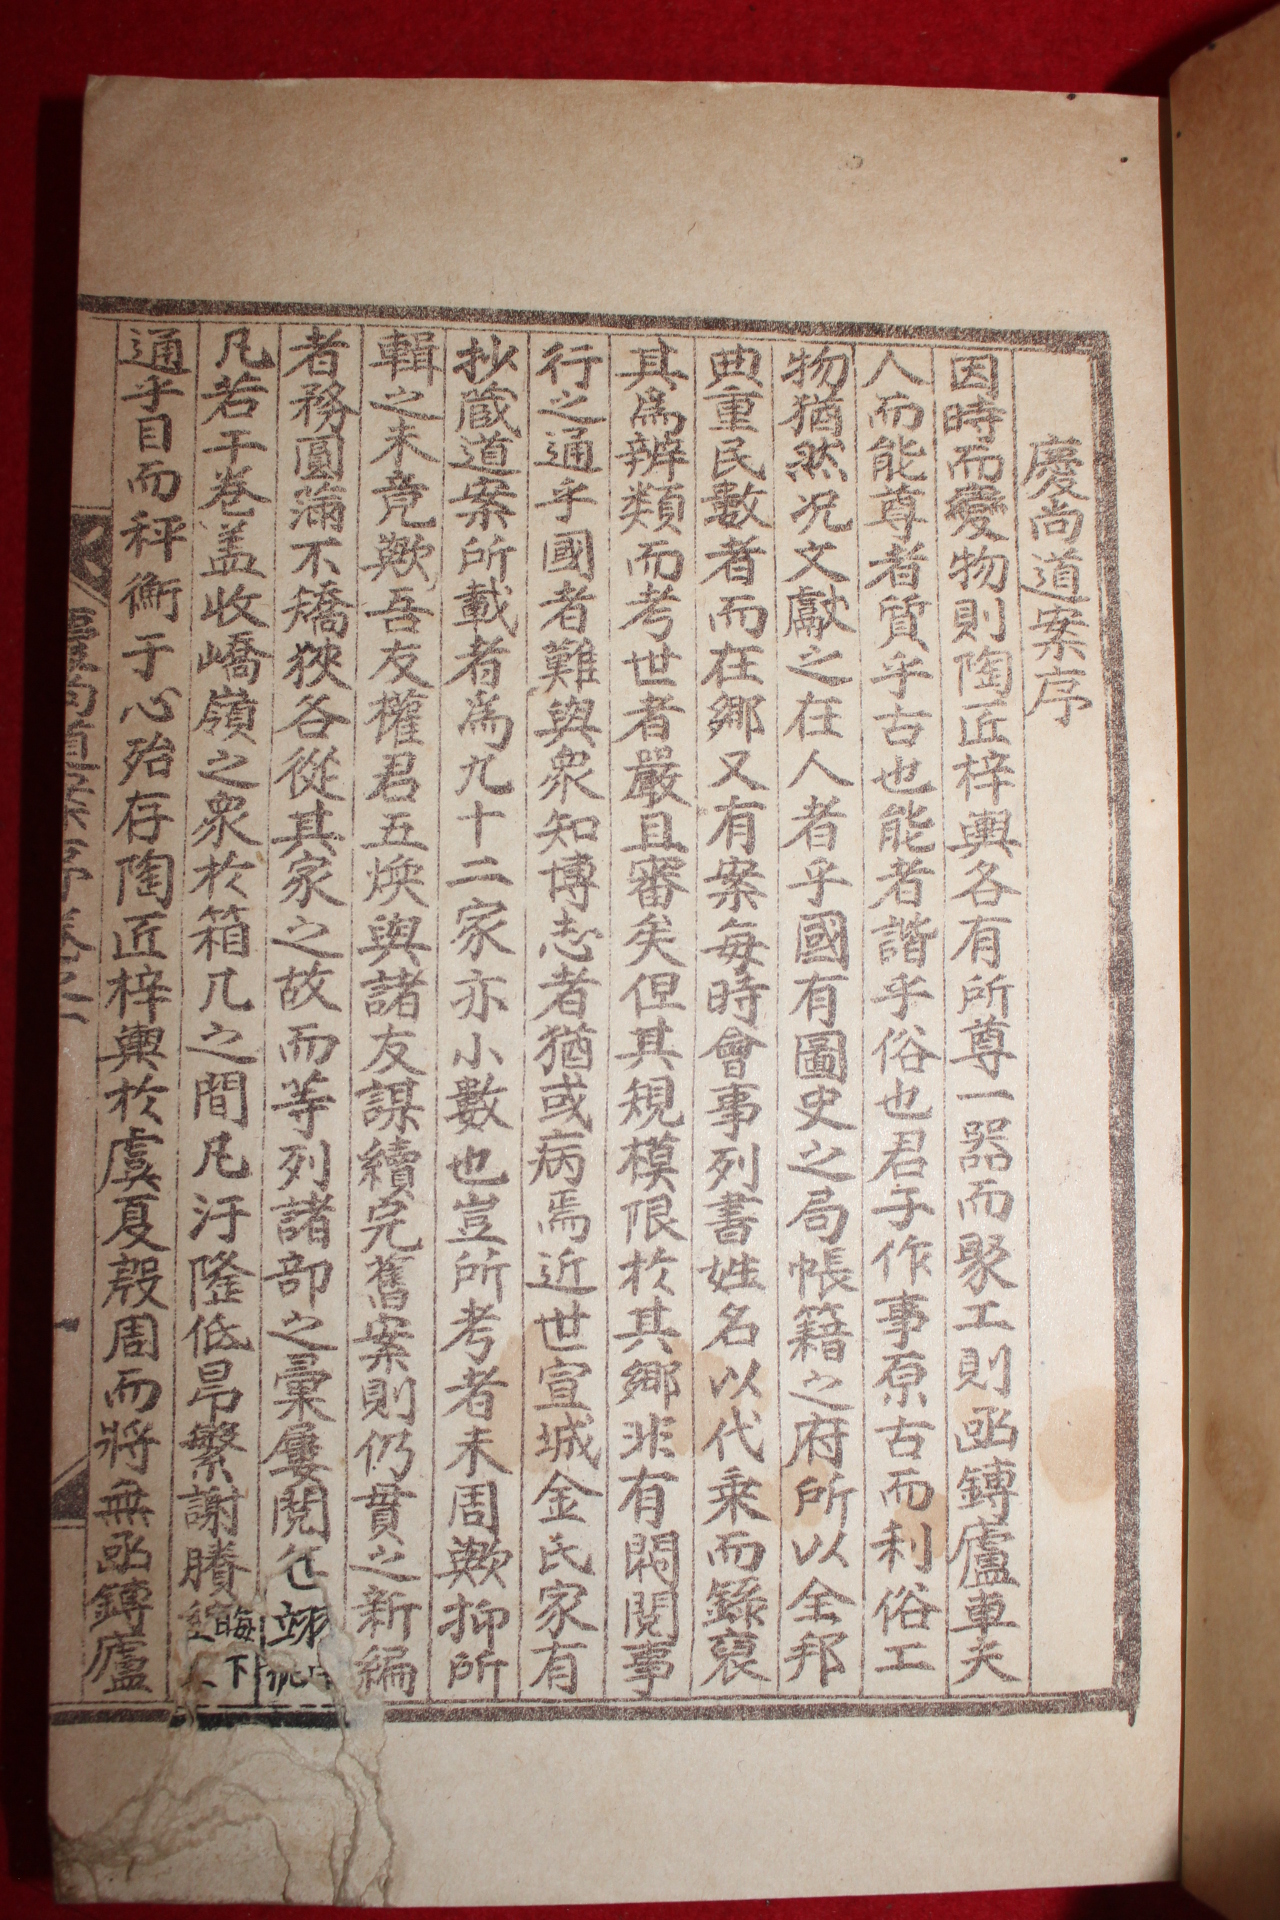 慶尚道案序
因時而變物則陶匠梓輿各有所尊一器而聚工則凾鏄廬車夫
人而能尊者質乎古也能者諧乎俗也君子作事原古而利俗工
物猶然况文獻之在人者乎國有圖史之局帳籍之府所以全邦
典重民數者而在鄉又有案每時會事列書姓名以代乘而錄裒
其爲辨類而考世者嚴且審矣但其規模限於其鄉非有閥閱事
行之通乎國者難與衆知博志者猶或病焉近世宣城金氏家有
抄蔵道案所載者爲九十二家亦小數也豈所考者未周歟抑所
輯之未竟歟吾友權君五煥與諸友謀續完舊案則仍貫之新編
者務圓滿不矯狹各從其家之故而等列諸部之彙屢閱
凡若干卷盖收嶠嶺之衆於箱几之間凡汙隆低昻繁謝賸
通乎目而秤衡于心殆存陶匠梓輿於虞夏殷周而將無凾鏄廬
慶尚道案序卷之一
一